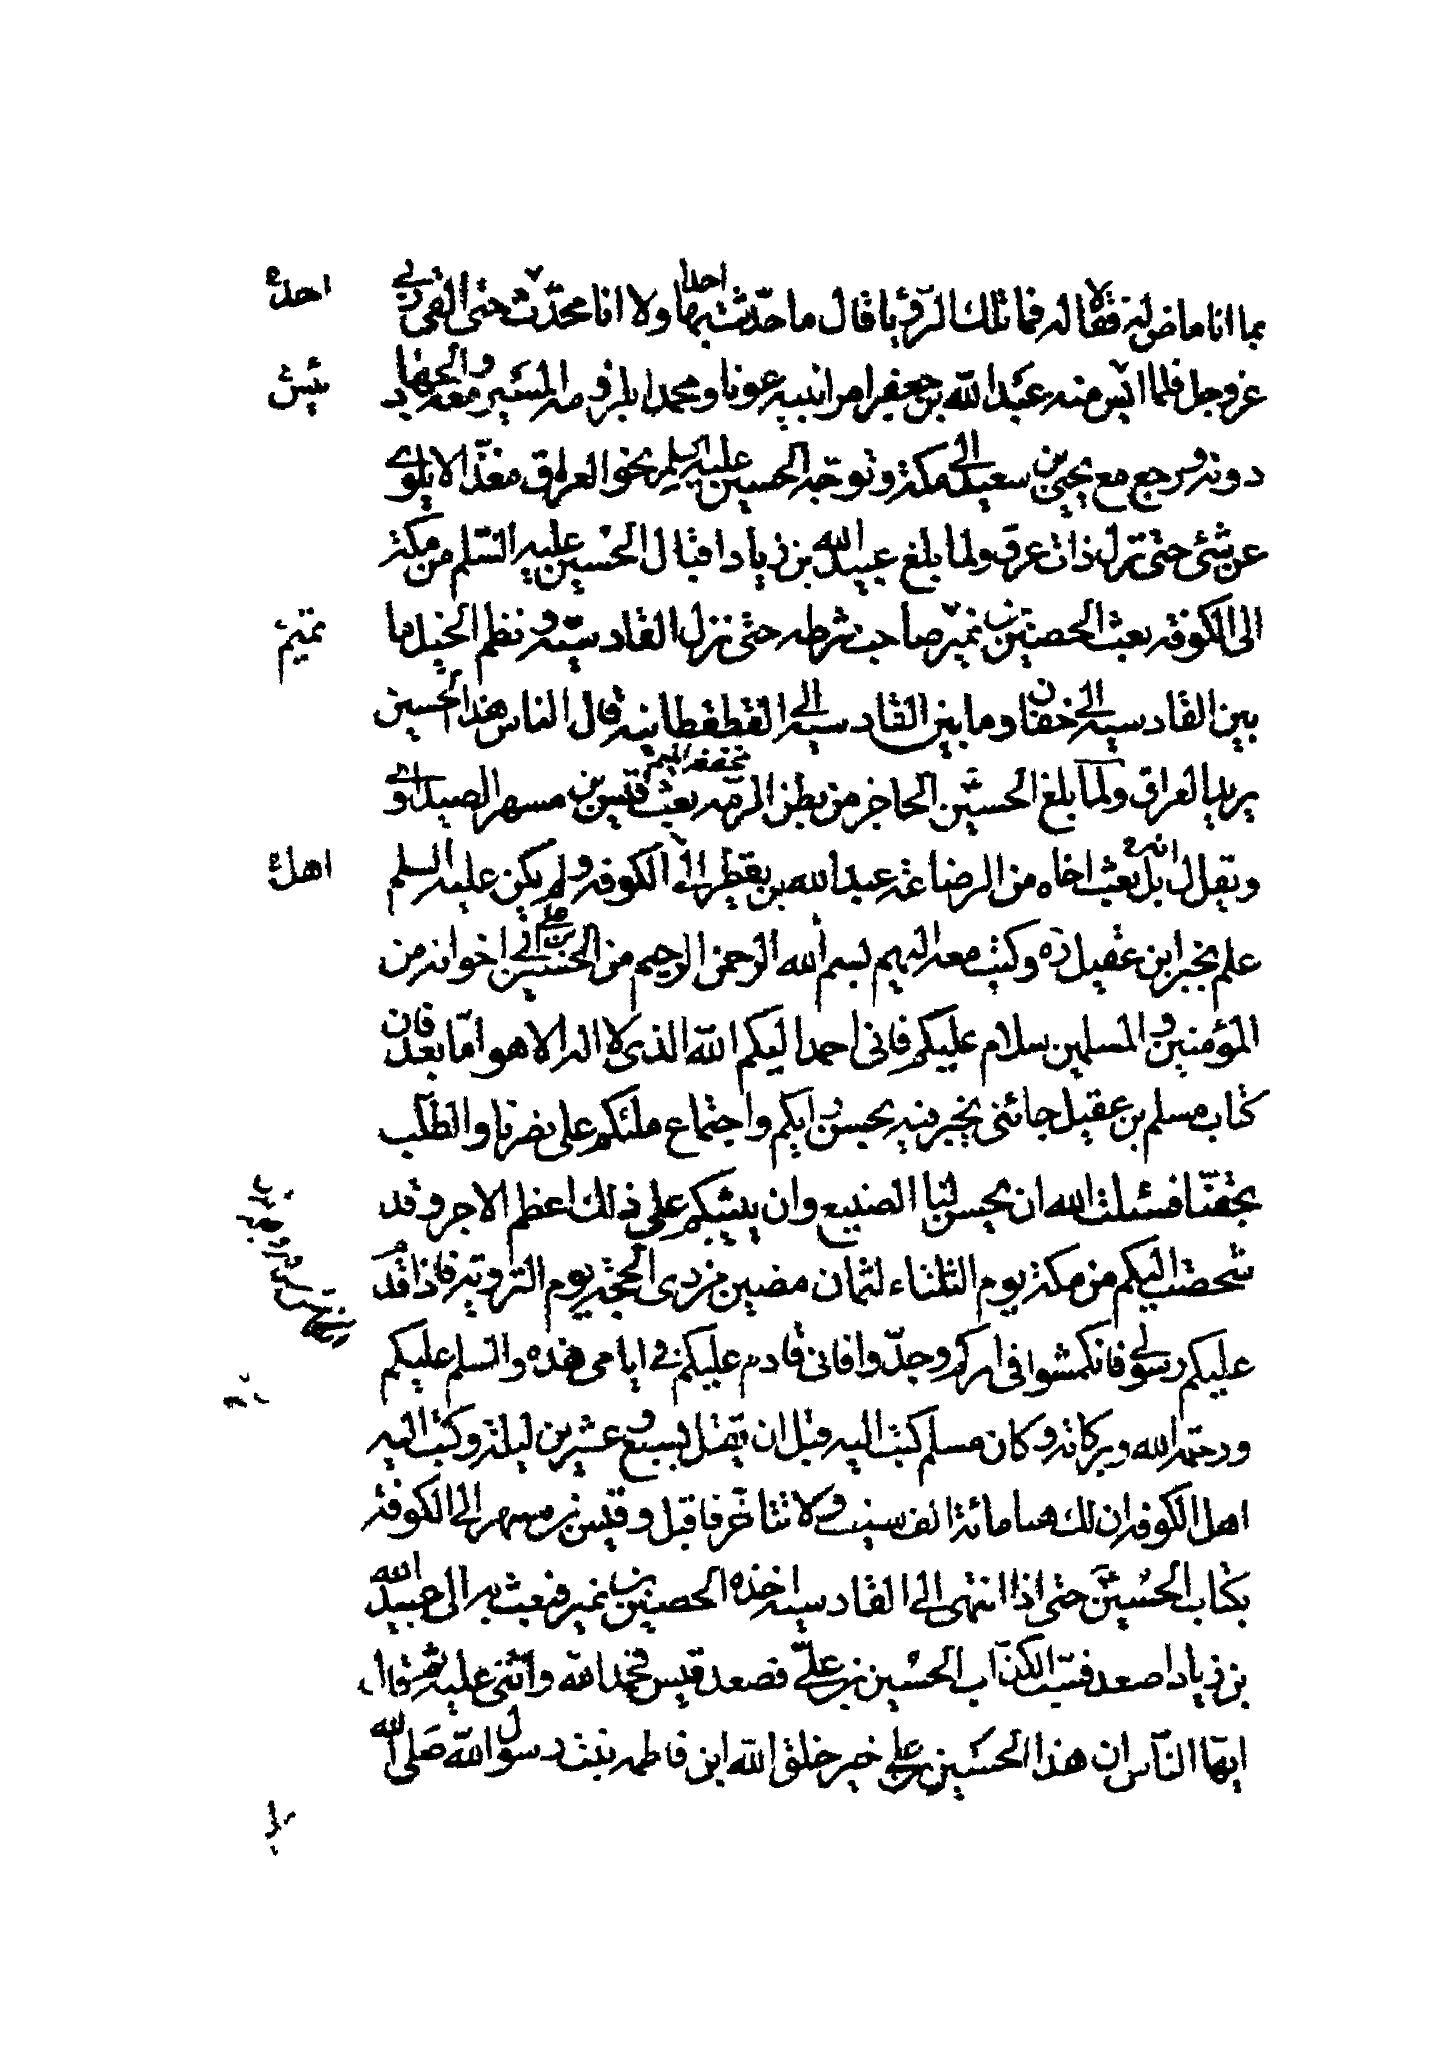 بما انا ماض له فقالا له فما تلك الرؤيا قال ما حدثت بها احدا ولا انا محدث حتى القى ربي
عز وجل فلما ايس منه عبد الله بن جعفر امر ابنيه عونا ومحمدا بلزومه المسير معه والجهاد
دونه ورجع مع يحيى بن سعيد الى مكة وتوجه الحسين عليه السلم نحو العراق مغذا لا يلوي
عن شئ حتى نزل ذات عرق ولما بلغ عبيد الله بن زياد اقبال الحسين عليه السلم من مكة
الى الكوفه بعث الحصين بن نمير صاحب شرطه حتى نزل القادسيه ونظم الخيل ما
بين القادسيه الى خفان وما بين القادسيه الى القطقطانيه قال الناس هذا الحسين
يريد العراق ولما بلغ الحسين الحاجز من بطن الرمه بعث قيس بن مسهر الصيداوي
ويقال بل بعث اخاه من الرضاعه عبد الله بن يقطر الى الكوفه ولم يكن عليه السلم
علم بخبر ابن عقيل ره وكتب معه اليهم بسم الله الرحمن الرحيم من الحسين بن علي الى اخوانه من
المؤمنين والمسلمين سلام عليكم فانى احمد اليكم الله الذى لا اله الا هو اما بعد فان
كتاب مسلم بن عقيل جائنى يخبر فيه بحسن رايكم واجتماع ملئكم على نصرنا والطلب
بحقنا فسئلت الله ان يحسن لنا الصنيع وان يثيبكم على ذلك اعظم الاجر وقد
شخصت اليكم من مكة يوم الثلثاء لثمان مضين من ذى الحجة يوم التروية فاذا قدم
عليكم رسولي فانكمشوا في امركم وجدوا فانى قادم عليكم في ايامى هذه والسلم عليكم
ورحمة الله وبركاته وكان مسلم كتب اليه قبل ان يقتل بسبع وعشرين ليلة وكتب اليه
اهل الكوفه ان لك هنا مائة الف سيف ولا تتاخر فاقبل وقيس بن مسهر الى الكوفة
بكتاب الحسين حتى اذا انتهى الى القادسيه اخذه الحصين بن نمير فبعث به الى عبيد الله
بن زياد اصعد فسب الكذاب الحسين بن علي فصعد قيس فحمد الله واثنى عليه ثم قال
ايها الناس ان هذا الحسين بن علي خير خلق الله ابن فاطمه بنت رسول الله صلى الله